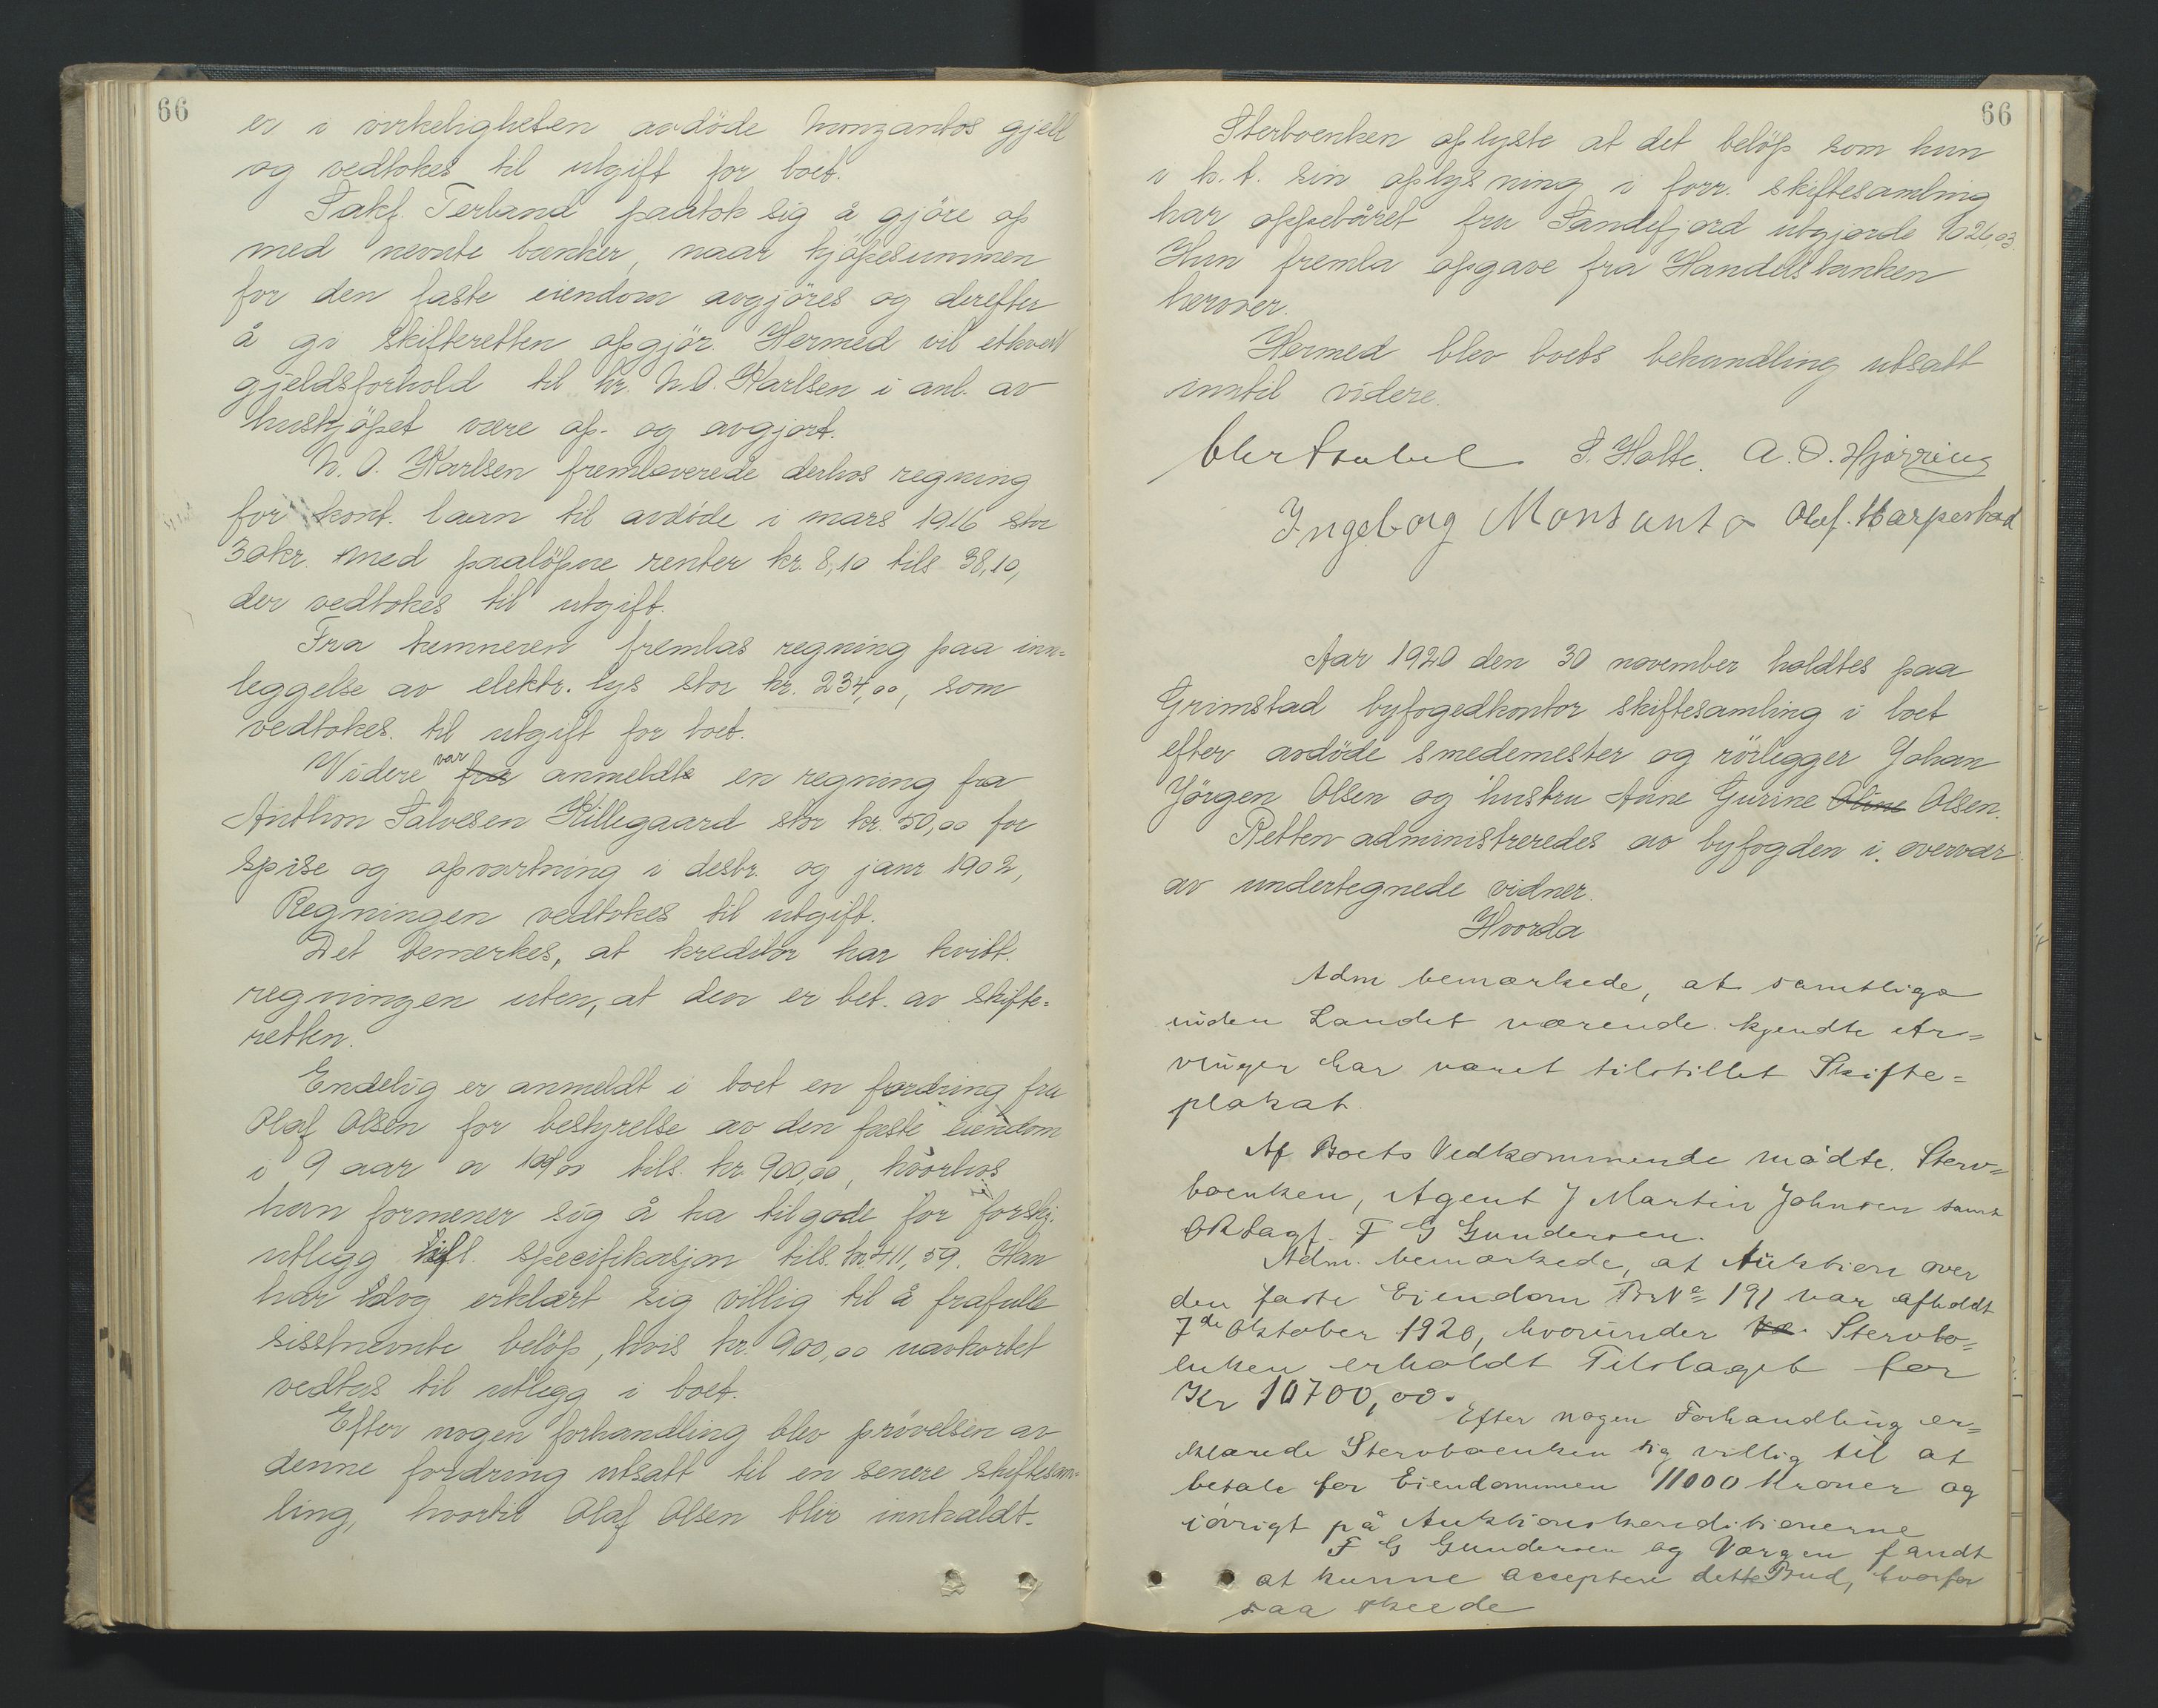 66
er i virkeligheten avdöde Monzantos gjeld
og vedtokes til utgift for boet.
Sakf. Terland paatok sig å gjöre op
med nevnte banker, naar kjöpesummen
for den faste eiendom avgjöres og derefter
å gi skifteretten opgjör. Hermed vil ethvert
gjeldsforhold til hr. N.O. Karlsen i anl. av
huskjöpet være op- og avgjort.
N. O. Karlsen fremleverede derhos regning
for kont. laan til avdöde i mars 1916 stor
30 kr. med paalöpne renter kr. 8,10 tils 38,10,
der vedtokes til utgift.
Fra kemneren fremlas regning paa inn=
leggelse av elektr. lys stor kr. 234,00, som
vedtokes til utgift for boet.
Videre var fra anmeldt en regning fra
Anthon Salvesen Killegaard stor kr. 50,00 for
spise og opvartning i desbr. og janr 1902,
Regningen vedtokes til utgift.
Det bemerkes, at kreditor har kvitt.
regningen uten, at den er bet. av skifte=
retten.
Endelig er anmeldt i boet en fordring fra
Olaf Olsen for bestyrelse av den faste eiendom
i 9 aar a 100,00 tils. kr. 900,00, hvorhos
han formener sig å ha tilgode for forskj.
utlegg ifl. specifikasjon tils. kr. 411,59. Han
har dog erklært sig villig til å frafalle
sisstnevnte belöp, hvis kr. 900,00 uavkortet
vedtas til utlegg i boet.
Efter nogen forhandling blev prövelsen av
denne fordring utsatt til en senere skiftesam=
ling, hvortil Olaf Olsen blir innkaldt.
66
Sterboenken oplyste at det belöp som hun
i h. t. sin oplysning i forr. skiftesamling
har oppebåret fra Sandefjord utgjorde 1026,03
Hun fremla opgave fra Handelsbanken
herover.
Hermed blev boets behandling utsatt
inntil videre.
S. Holte. A. O. Hjörring
Ingeborg Monsanto Olaf. Harpestad
Aar 1920 den 30 november holdtes paa
Grimstad byfogedkontor skiftesamling i boet
efter avdöde smedemester og rörlegger Johan
Jörgen Olsen og hustru Anne Gurine Oline Olsen.
Retten administreredes av byfogden i overvær
av undertegnede vidner.
Hvorda
Adm bemærkede, at samtlige
inden Landet værende kjendte Ar=
vinger har været tilstillet Skifte=
plakat.
Af Boets Vedkommende mødte. Sterv=
boenken, Agent J Martin Johnsen samt
ORsagf. F G Gundersen.
Adm. bemærkede, at Auktion over
den faste Eiendom Br No 191 var afholdt
7de Oktober 1920, hvorunder Stervbo=
enken erholdt Tilslaget for
Kr 10700,00.
Efter nogen Forhandling er=
klærede Stervboenken sig villig til at
betale for Eiendommen 11000 Kroner og
iøvrigt på Auktionskonditionerne
F G Gundersen og Værgen fandt
at kunne acceptere dette Bud, hvorfor
saa skeede